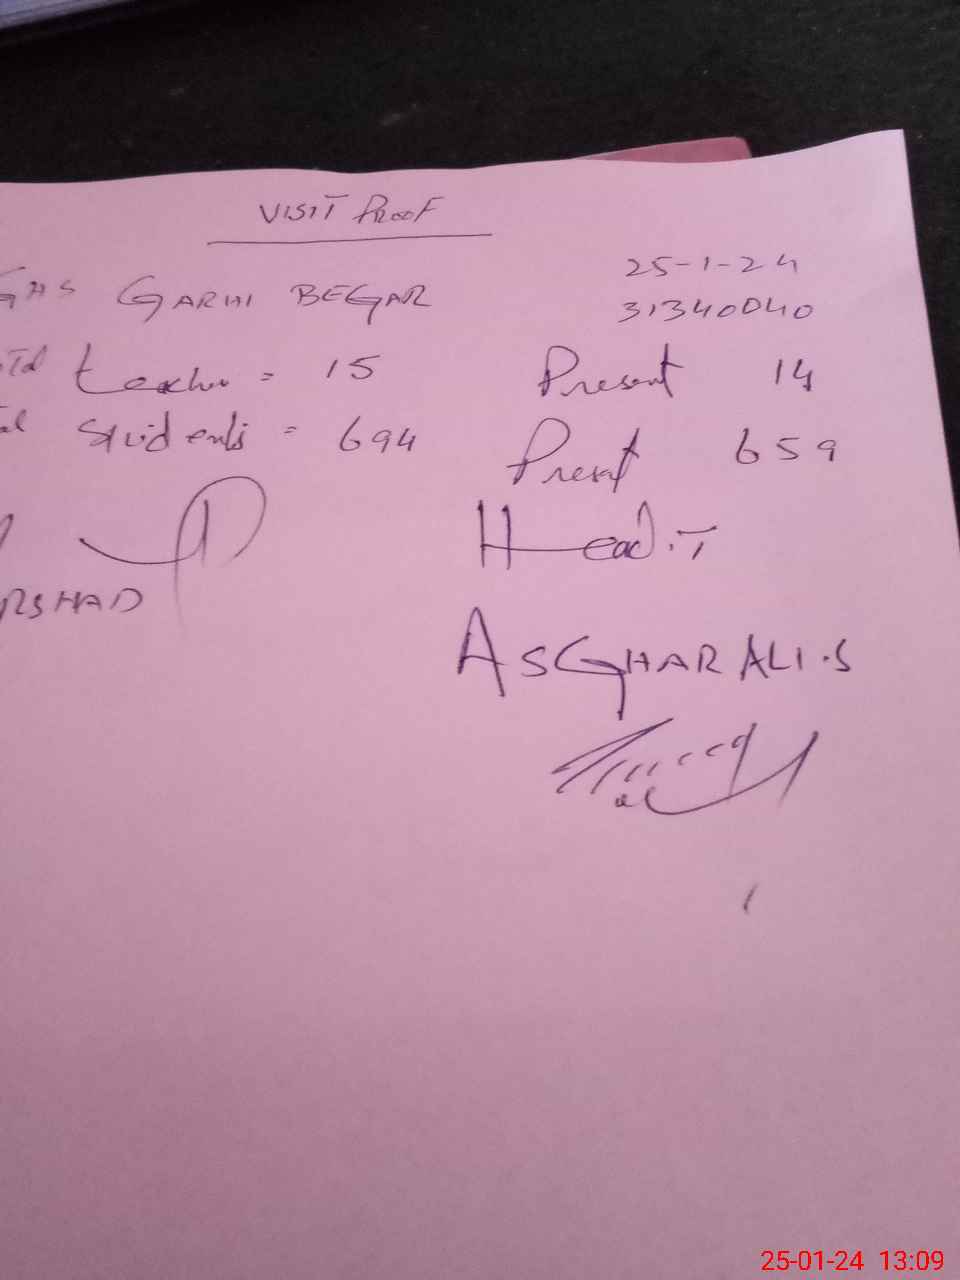 VISIT PROOF
GHS GARHI BEGAR 25-1-24
31340040
teacher = 15 Present 14
Students = 694 Present 659
Head.T
RSHAD
ASGHAR ALI.S
25-01-24 13:09